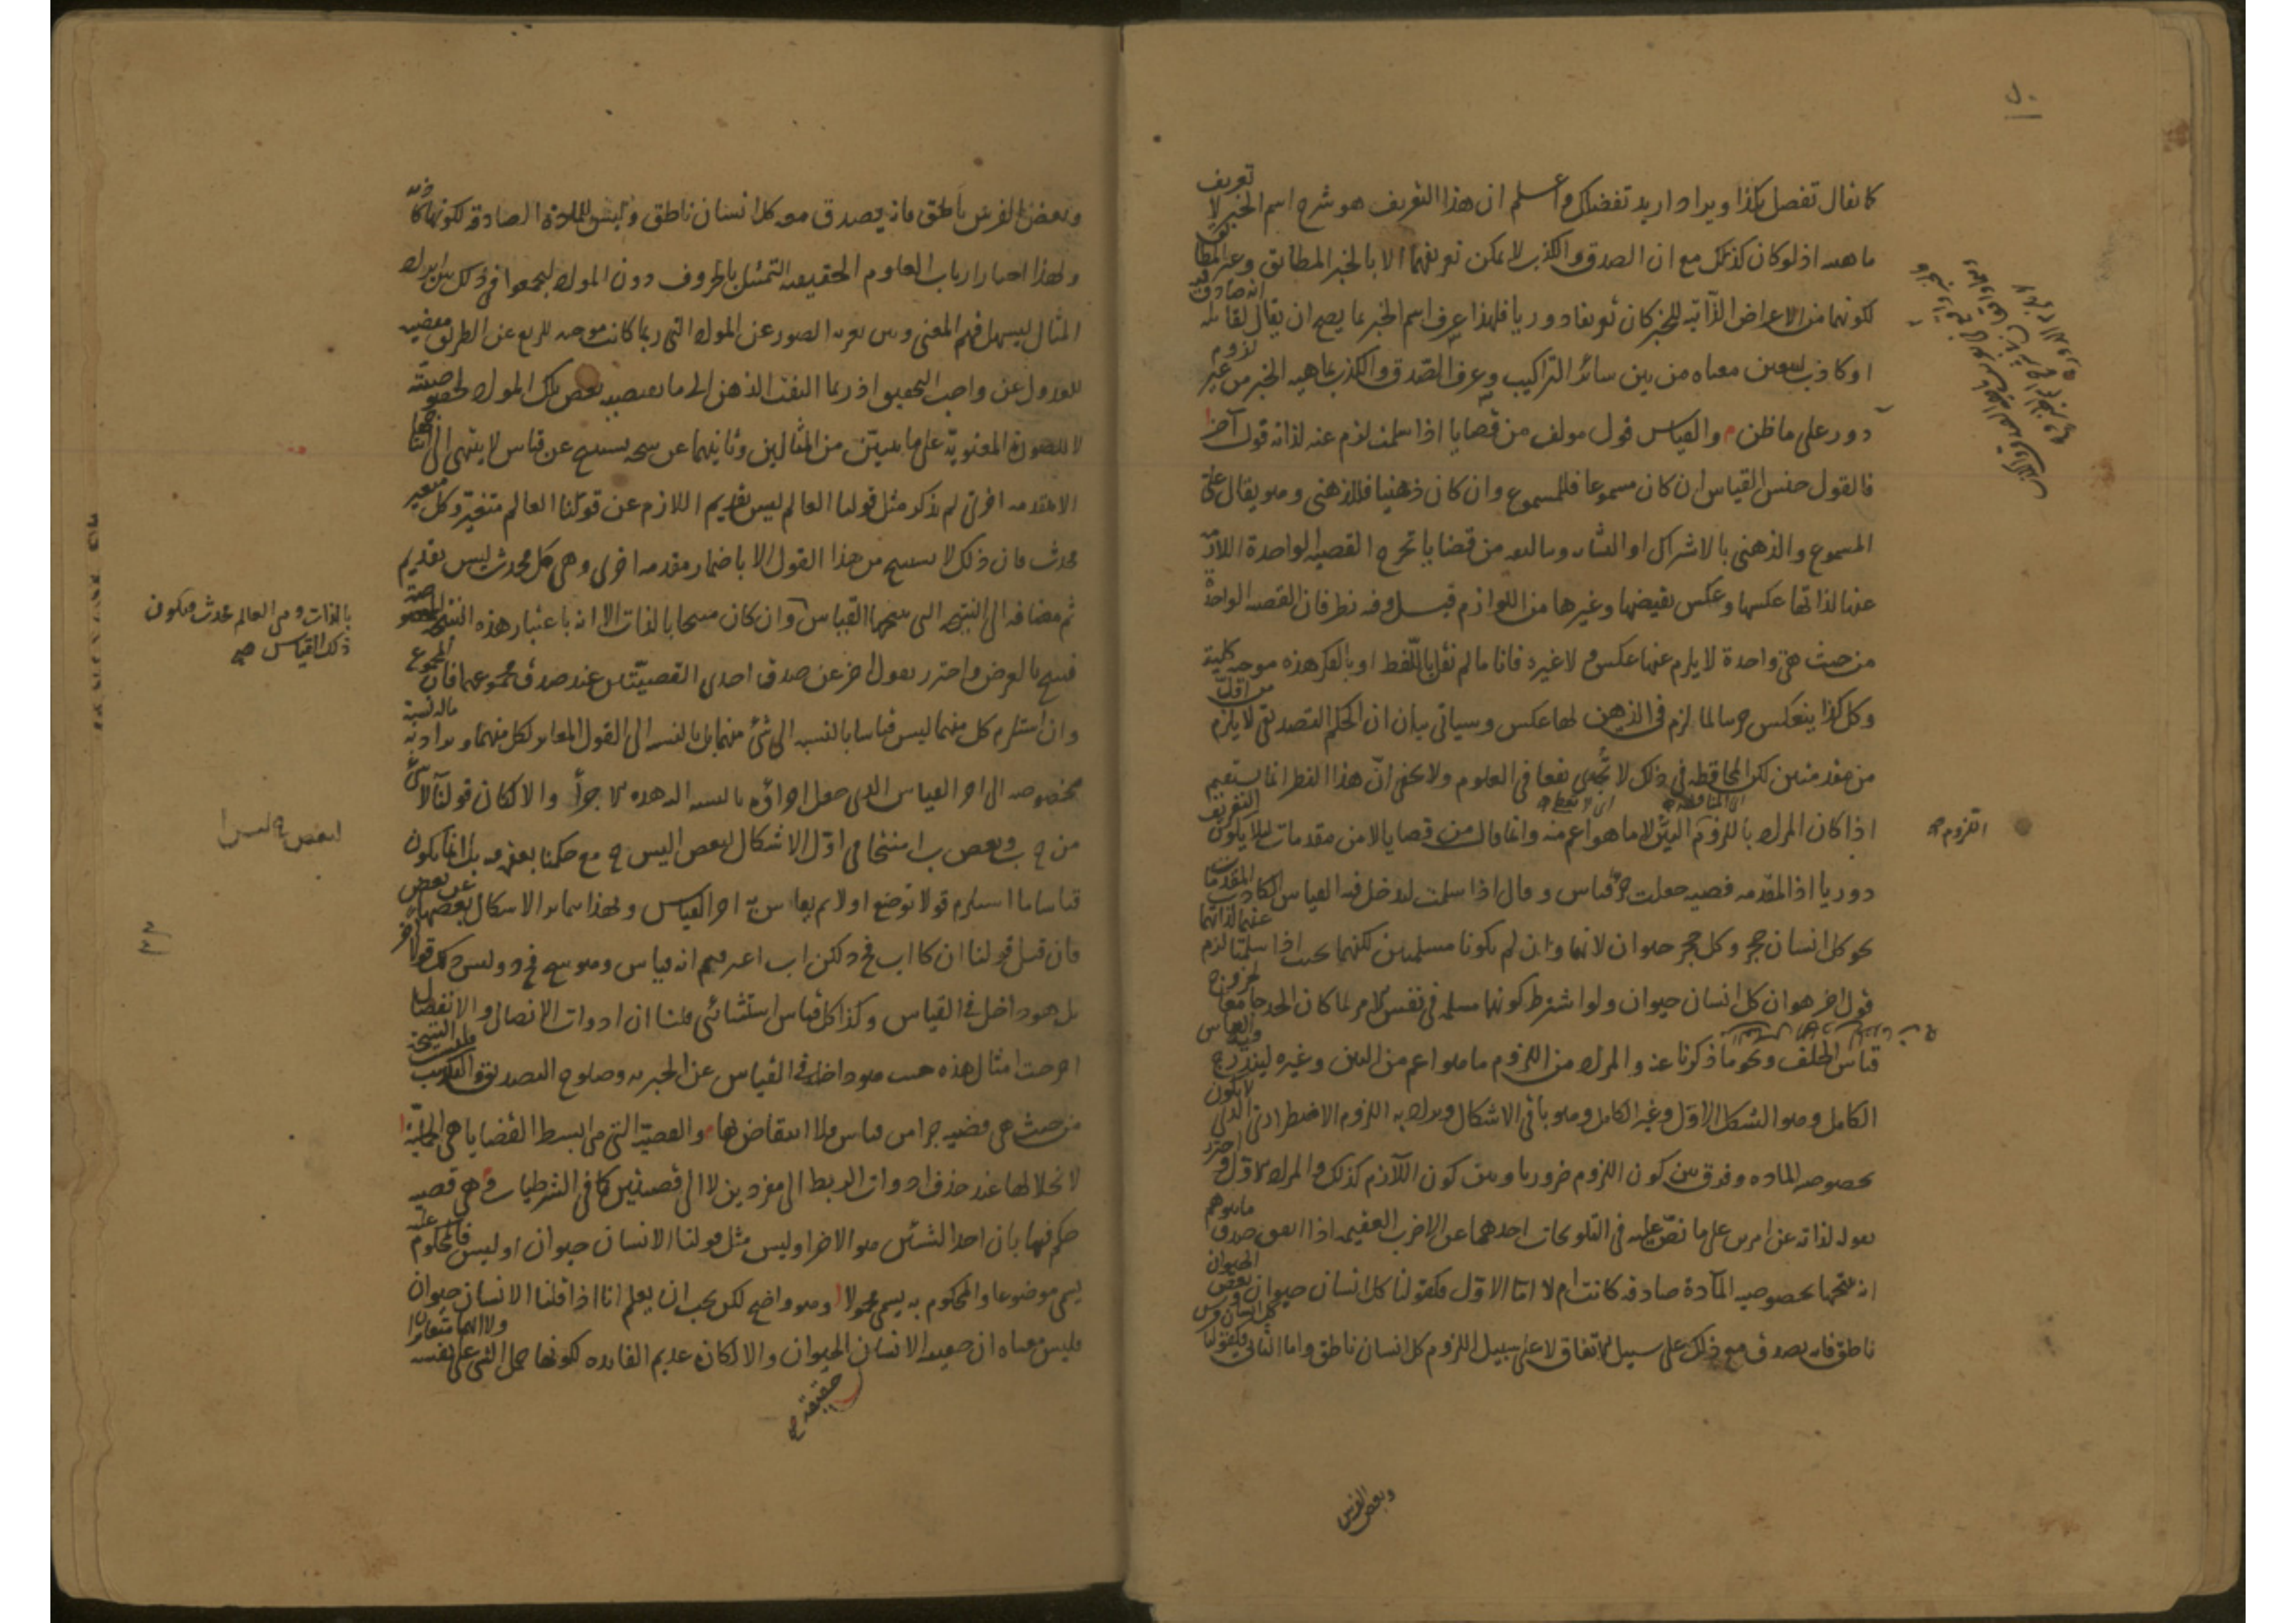 كما يقال تفضل بكذا ويراد اريد تفضلك واعلم ان هذا التعريف هو شرح اسم الخبر لا تعريف
ماهيته اذ لو كان كذلك مع ان الصدق والكذب لا يمكن تعريفهما الا بالخبر المطابق وغير المطابق
لكونهما من الاعراض الذاتية للخبر كان تعريفا دوريا فلهذا عرف اسم الخبر بما يصح ان يقال لقائله انه صادق فيه
او كاذب ليتعين معناه من بين سائر التراكيب وعرف الصدق والكذب بماهية الخبر من غير لزوم
دور على ما ظن والقياس قول مؤلف من قضايا اذا سلمت لزم عنه لذاته قول آخر
فالقول جنس القياس ان كان مسموعا فللمسموع وان كان ذهنيا فللذهني وهو يقال على
المسموع والذهني بالاشتراك او التشابه وبتأليفه من قضايا تخرج القضية الواحدة اللازم
عنها لذاتها عكسها وعكس نقيضها وغيرها من اللوازم قيل وفيه نظر فان القضية الواحدة
من حيث هي واحدة لا يلزم عنها عكس ولا غيره فانا ما لم نقل باللفظ او بالفكر هذه موجبة كلية
وكل كذا ينعكس جزئيا لما لزم في الذهن لها عكس وسيأتي بيان ان الحكم التصديقي لا يلزم من اقل
من مقدمتين لكن المحافظة في ذلك لا تجدي نفعا في العلوم ولا يخفى ان هذا النظر انما يستقيم
اذا كان المراد باللزوم البين لا ما هو اعم منه وانما قال من قضايا لا من مقدمات لئلا يكون التعريف
دوريا اذ المقدمة قضية جعلت جزء قياس وقال اذا سلمت ليدخل فيه القياس الكاذب المقدمات
نحو كل انسان حجر وكل حجر حيوان لانهما وان لم يكونا مسلمتين لكنهما بحيث اذا سلمتا لزم عنهما لذاتهما
قول آخر هو ان كل انسان حيوان ولو اشترط كونها مسلمة في نفس الامر لما كان الحد جامعا لخروج
قياس الخلف ونحو ما ذكرنا عنه والمراد من اللزوم ما هو اعم من البين وغيره ليندرج فيه القياس
الكامل وهو الشكل الاول وغير الكامل وهو باقي الاشكال ويراد به اللزوم الاضطراري الذي لا يكون
بخصوصية المادة وفرق بين كون اللزوم ضروريا وبين كون اللازم كذلك والمراد الاول واحترز
بقوله لذاته عن امرين على ما نص عليه في التلويحات احدهما عن الاضرب العقيمة اذا اتفق صدق ما يتوهم
انه نتيجتها بخصوصية المادة صادقة كانت ام لا اما الاول فكقولنا كل انسان حيوان وبعض الحيوان
ناطق فانه يصدق مع ذلك على سبيل الاتفاق لا على سبيل اللزوم كل انسان ناطق واما الثاني فكقولنا كل انسان فرس
اللزوم
وبعض الفرس
وبعض الفرس ناطق فانه يصدق معه كل انسان ناطق وليس للمادة الصادقة لكونها كاذبة
ولهذا اختار ارباب العلوم الحقيقية التمثيل بالحروف دون المواد ليجمعوا في ذلك بين ايراد
المثال ليسهل فهم المعنى وبين تعرية الصور عن المواد التي ربما كانت موجبة للزيغ عن الطريق مفضية
للعدول عن واجب التحقيق اذ ربما التفت الذهن الى ما تقتضيه بعض تلك المواد لخصوصيته
لا للصورة المعنوية على ما يتبين من المثالين وثانيهما عن نتيجة تستنتج عن قياس لا ينتهي الى انتاجها
الا بمقدمة اخرى لم تذكر مثل قولنا العالم ليس بقديم اللازم عن قولنا العالم متغير وكل متغير
محدث فان ذلك لا يستنتج من هذا القول الا باضمار مقدمة اخرى وهي كل محدث ليس بقديم
ثم مضافة الى النتيجة التي ينتجها القياس وان كان منتجا بالذات الا انه باعتبار هذه النتيجة
فينتج بالعرض واحترز بقول آخر عن صدق احدى القضيتين عند صدق مجموعهما فان المجموع
وان استلزم كل منهما ليس قياسا بالنسبة الى شئ منهما بل بالنسبة الى القول المغاير لكل منهما ويراد به ما له نسبة
مخصوصة الى اجزاء القياس الذي جعل اجزاؤه بالنسبة اليه هذه الاجزاء والا لكان قولنا لا شئ
من ج ب وبعض ب ا منتجا في اول الاشكال لبعض ا ليس ج مع حكمنا بعقمه بل انما يكون
قياسا ما استلزم قولا نوضع اولا ثم يقاس به اجزاء القياس ولهذا يتمايز الاشكال بعضها عن بعض
فان قيل قولنا ان كان ا ب فج د لكن ا ب اعترفتم انه قياس وهو ينتج فج د وليس ذلك قولا آخر
بل هو داخل في القياس وكذا كل قياس استثنائي قلنا ان ادوات الاتصال والانفصال
اخرجت امثال هذه حيث هو داخل في القياس عن الخبرية وصلوح التصديق والتكذيب فليست النتيجة
من حيث هي قضية جزءا من قياس فلا انتقاض بها والقضية التي هي ابسط القضايا هي الحملية
لانحلالها عند حذف ادوات الربط الى مفردين لا الى قضيتين كما في الشرطيات وهي قضية
حكم فيها بان احد الشئين هو الآخر او ليس مثل قولنا الانسان حيوان او ليس فالمحكوم عليه
يسمى موضوعا والمحكوم به يسمى محمولا وهو واضح لكن يجب ان يعلم انا اذا قلنا الانسان حيوان
فليس معناه ان حقيقة الانسان الحيوان والا لكان عديم الفائدة لكونها حمل الشئ على نفسه
بالذات وهي العالم محدث فيكون
ذلك القياس
لبعض ج ليس ا
حقيقة